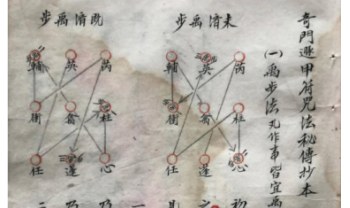 奇門遁甲符咒法秘傳抄本
(一)禹步法凡作事皆宜禹
未濟禹步
芮英輔
柱禽衝
心蓬任
既濟禹步
芮英輔
柱禽衝
心蓬任